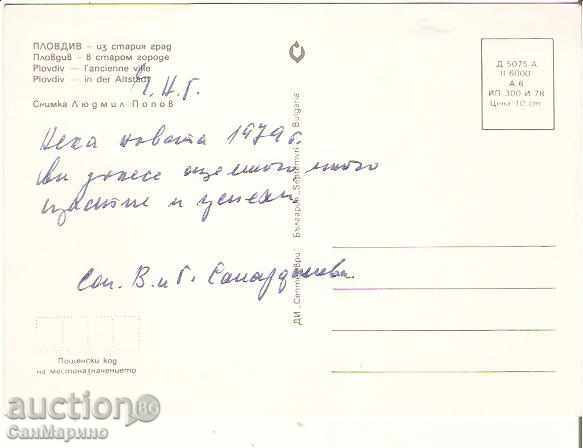 ПЛОВДИВ – из стария град
Пловдив – в старом городе
Plovdiv – l'ancienne ville
Plovdiv – in der Altstadt
Ч.Н.Г.
Снимка Людмил Попов
Нека новата 1979 г.
ви донесе още много много
щастие и успехи.
Сем. В. и Г.
ДИ „Септември" България „Septemvri" Bulgaria
Д 5075-А
II 6000
А 6
ИП 300 И 78
Цена 10 ст
Пощенски код
на местоназначението
auction BG
СанМарино